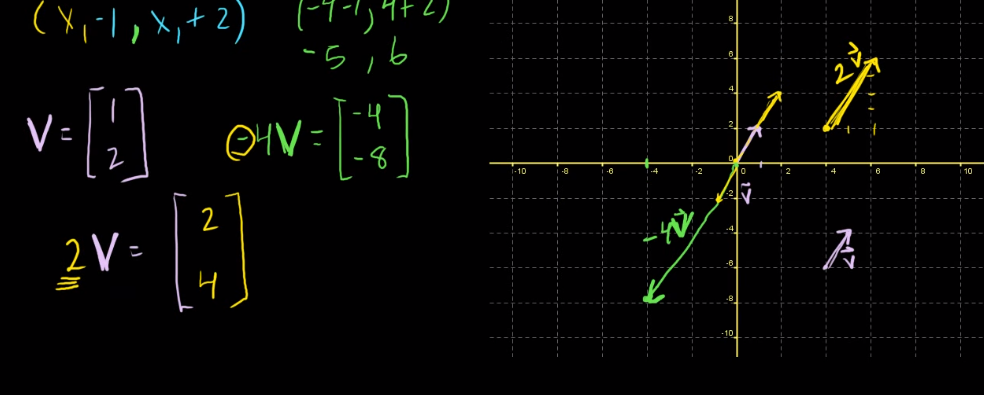 (x₁-1, x₁+2)
(-4-1, 4+2)
-5, 6
V = [1 2]
-4V = [-4 -8]
2V = [2 4]
8
6
4
2
0
-10 -8 -6 -4 -2 0 2 4 6 8 10
-2
-4
-6
-8
-10
2v⃗
v⃗
-4v⃗
v⃗